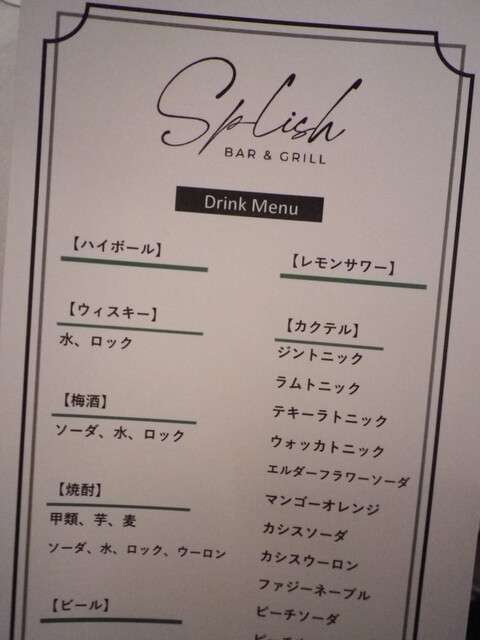 Splish
BAR & GRILL
Drink Menu
【ハイボール】
【ウィスキー】
水、ロック
【梅酒】
ソーダ、水、ロック
【焼酎】
甲類、芋、麦
ソーダ、水、ロック、ウーロン
【ビール】
【レモンサワー】
【カクテル】
ジントニック
ラムトニック
テキーラトニック
ウォッカトニック
エルダーフラワーソーダ
マンゴーオレンジ
カシスソーダ
カシスウーロン
ファジーネーブル
ピーチソーダ